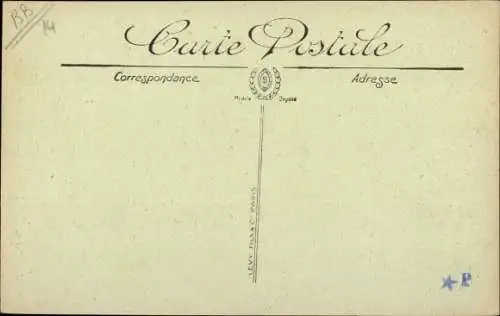 BB
14
Carte Postale
Correspondance
Adresse
Modèle Déposé
LEVY Fils & Cie PARIS
P